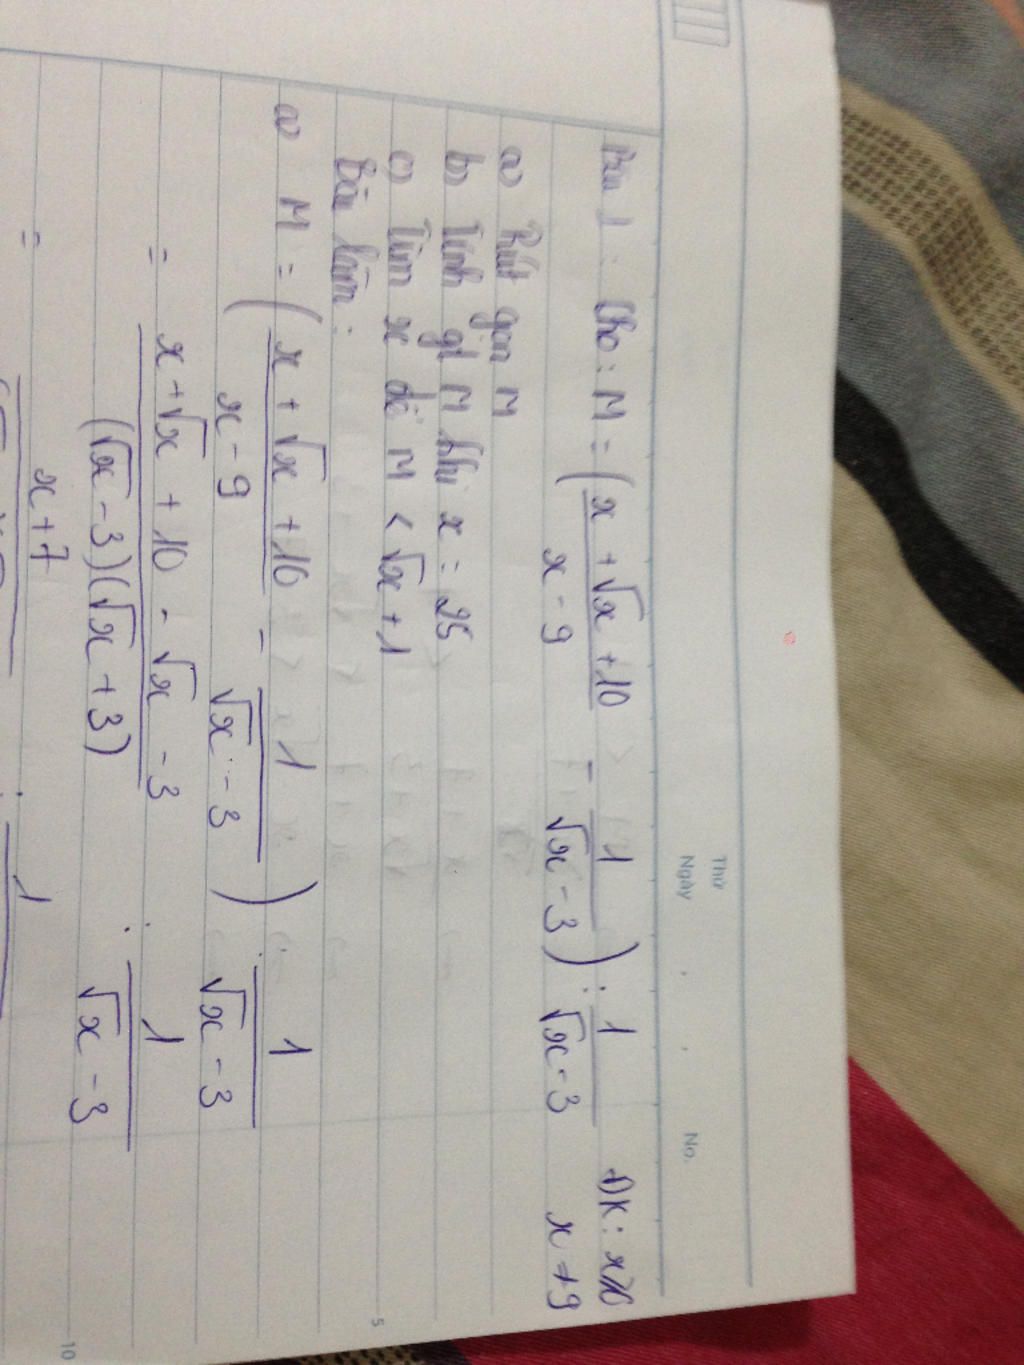 Thứ
Ngày . . No.
Bài 1 : Cho : M = ( x + √x + 10 / x - 9 - 1 / √x - 3 ) : 1 / √x - 3 ĐK : x ≥ 0
x ≠ 9
a) Rút gọn M
b) Tính gt M khi x = 25
c) Tìm x để M < √x + 1
Bài làm :
a) M = ( x + √x + 10 / x - 9 - 1 / √x - 3 ) : 1 / √x - 3
= x + √x + 10 - √x - 3 / (√x - 3)(√x + 3) : 1 / √x - 3
= x + 7 : 1
5
10